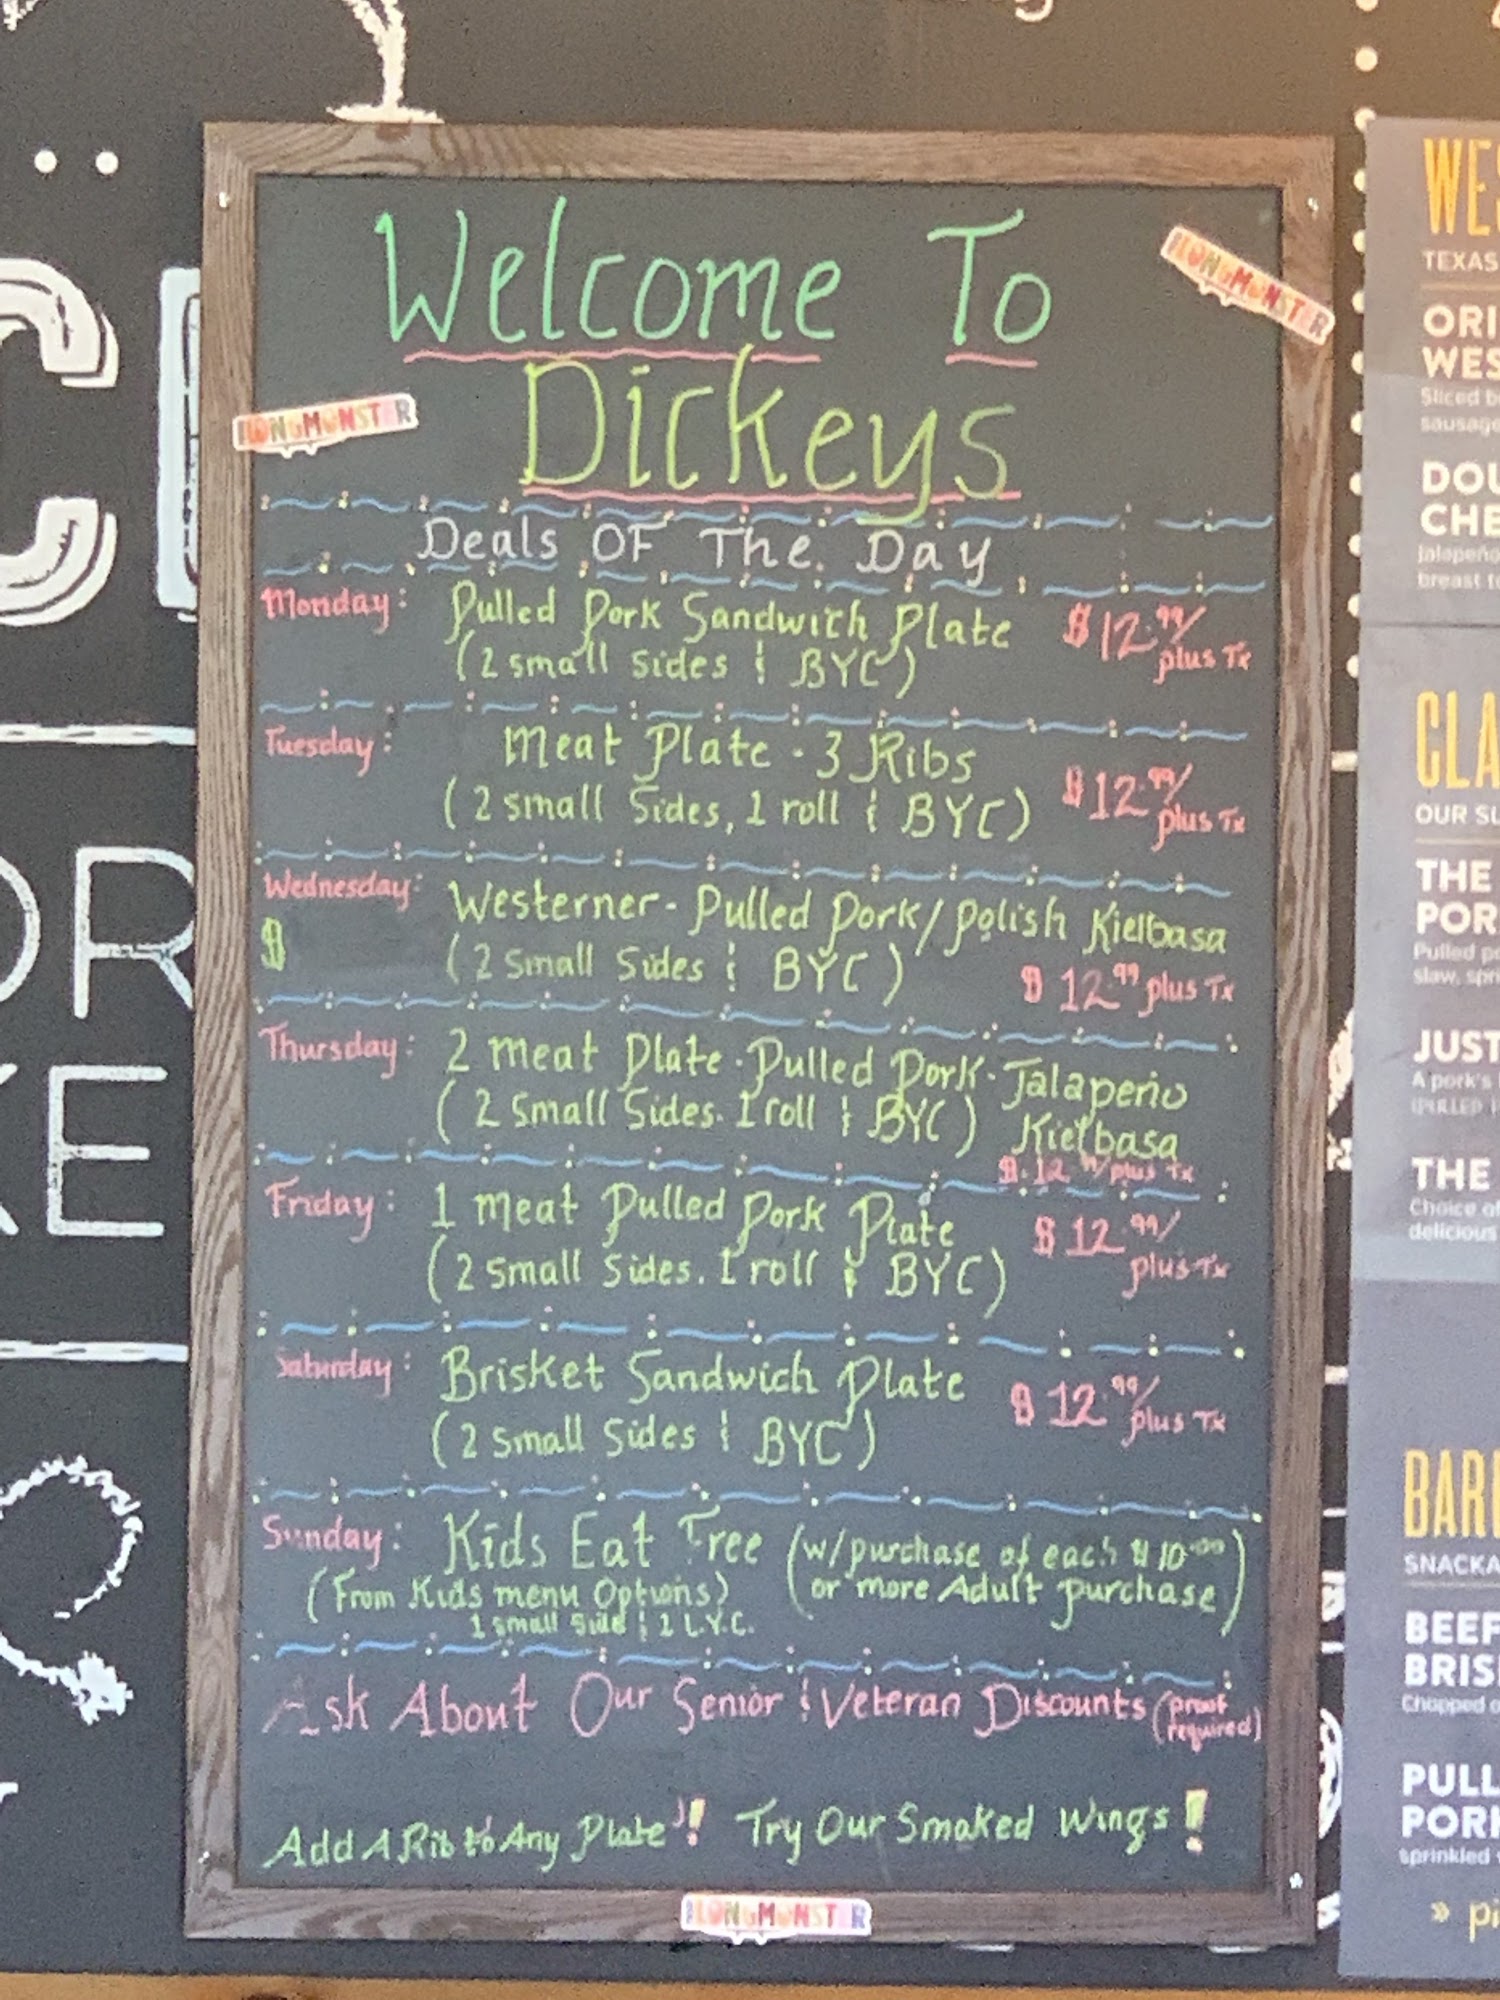 Welcome To
Dickeys
Deals OF The Day
Monday: Pulled Pork Sandwich Plate $12.99/
(2 small Sides & BYC) plus Tx
Tuesday: Meat Plate - 3 Ribs $12.99/
(2 small Sides, 1 roll & BYC) plus Tx
Wednesday: Westerner - Pulled Pork/Polish Kielbasa
$ (2 Small Sides & BYC) $12.99 plus Tx
Thursday: 2 meat Plate - Pulled Pork - Jalapeño
(2 Small Sides. 1 roll & BYC) Kielbasa
$12.99/plus Tx
Friday: 1 meat Pulled Pork Plate $12.99/
(2 small Sides. 1 roll & BYC) plus Tx
Saturday: Brisket Sandwich Plate $12.99/
(2 Small Sides & BYC) plus Tx
Sunday: Kids Eat Free (w/purchase of each $10.00
(From Kids menu Options) or more Adult purchase)
1 small Side & 1 L.Y.C.
Ask About Our Senior & Veteran Discounts (proof
required)
Add A Rib to Any Plate! Try Our Smoked Wings!
WES
TEXAS
ORI
WES
Sliced b
sausage
DOU
CHE
jalapeño
breast t
CLA
OUR SL
THE
POR
Pulled p
slaw, spri
JUST
A pork's
THE
Choice of
delicious
BAR
SNACKA
BEEF
BRIS
Chopped o
PULL
PORK
sprinkled
» pi